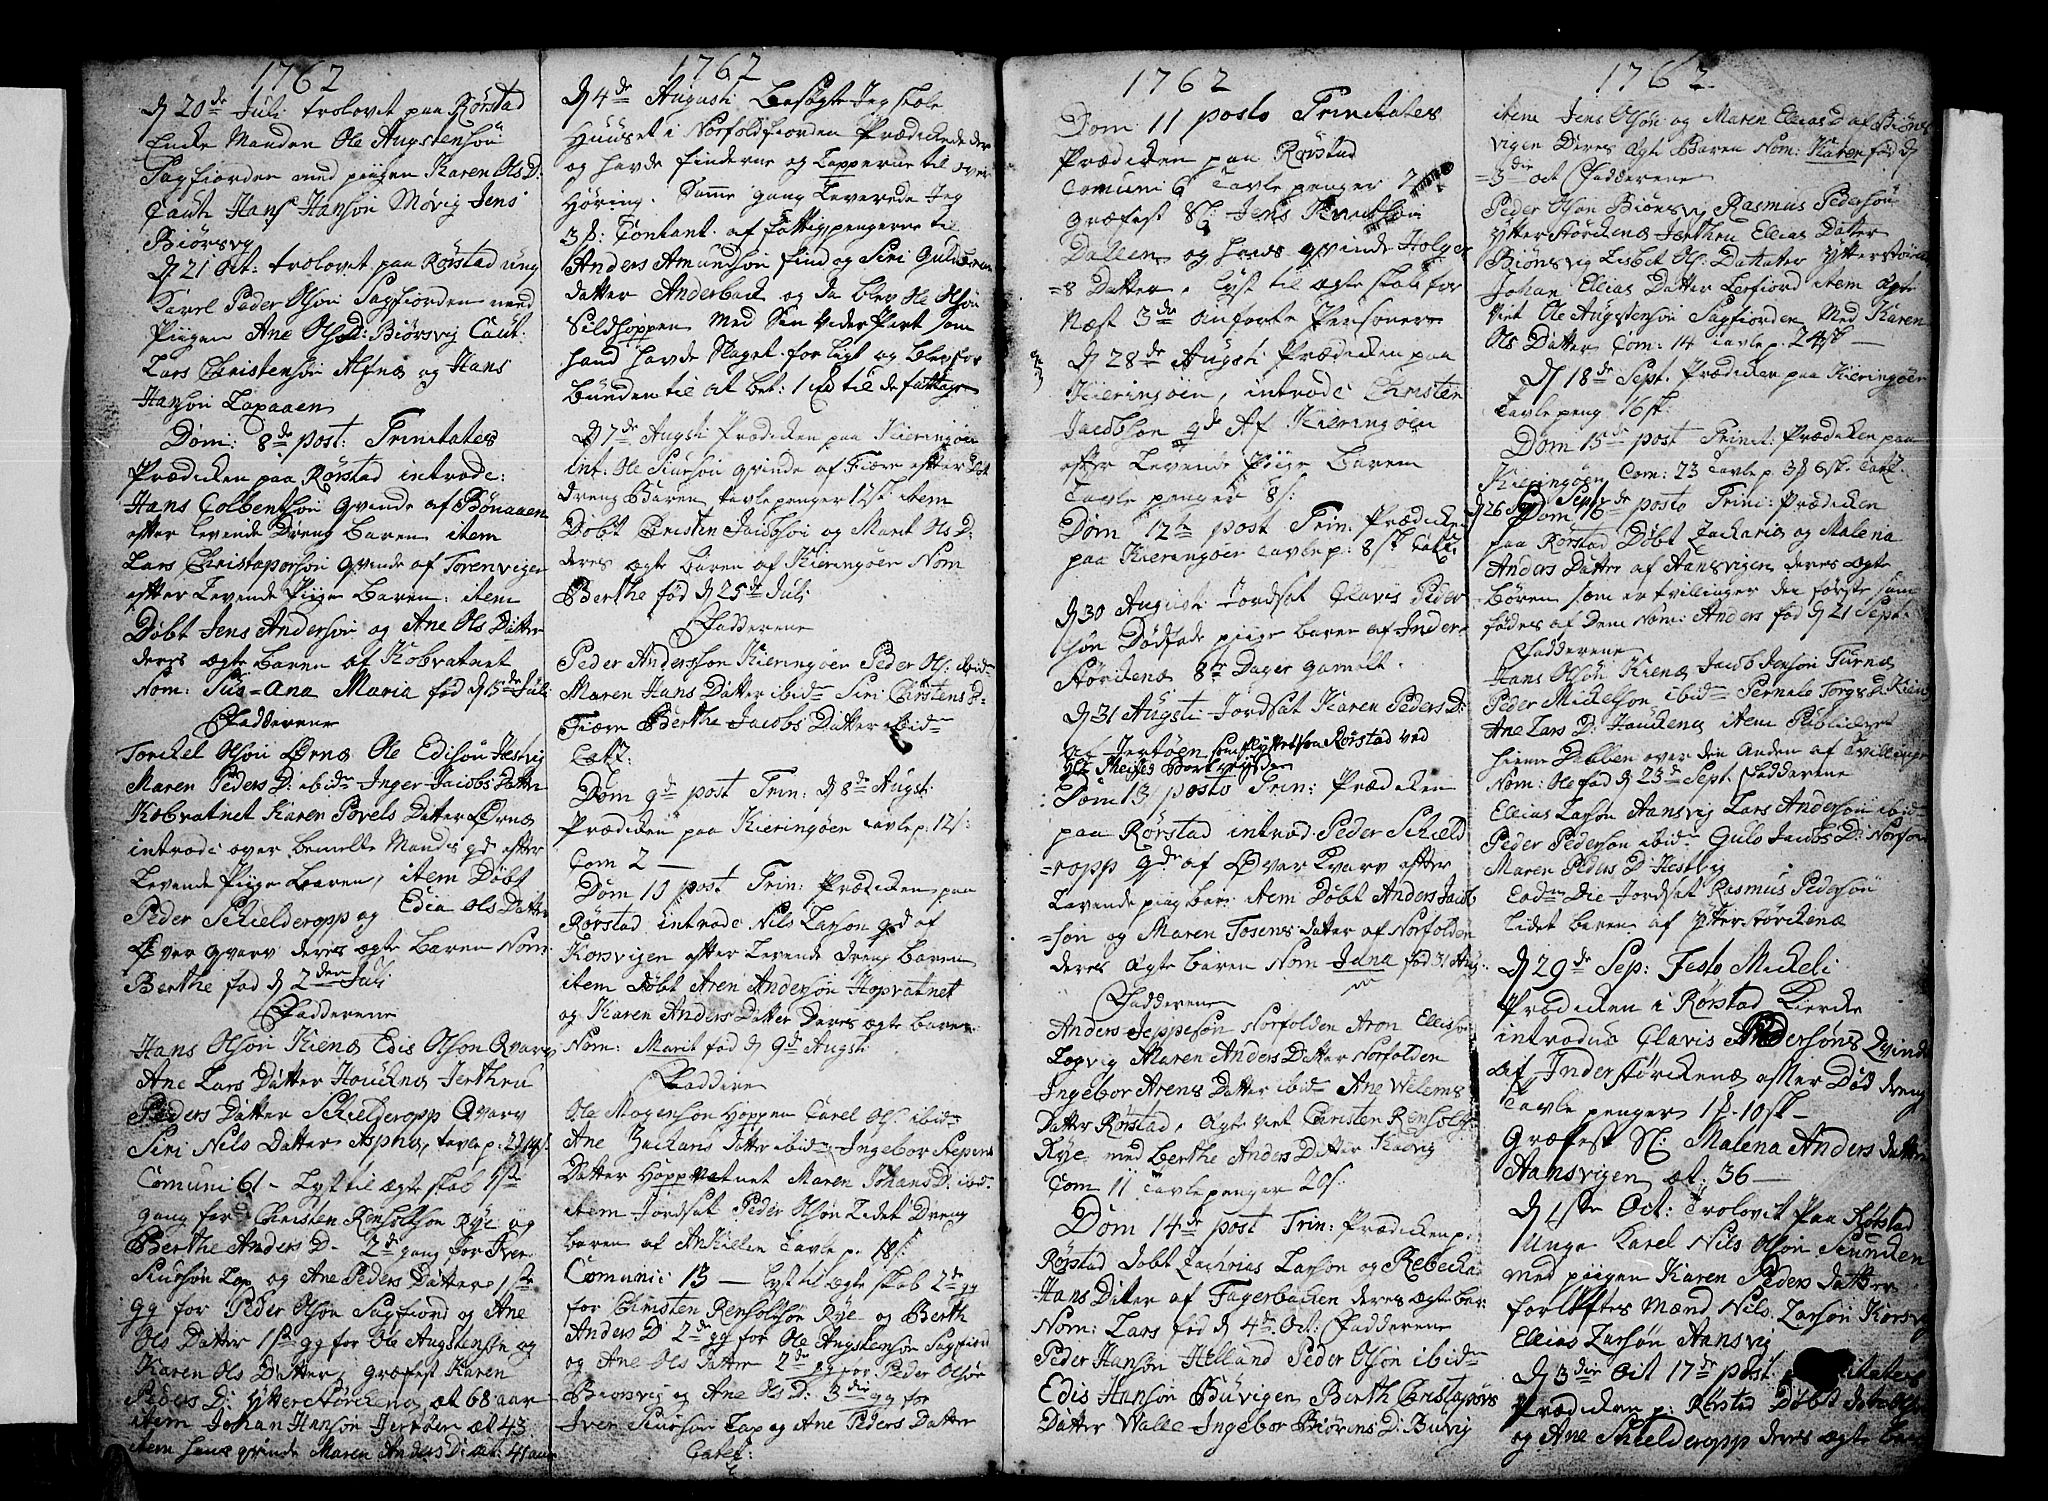 1762
d 20de Juli trolovet paa Rørstad
Encke Manden Ole Augstensøn
Sagfiorden med piigen Karen Ols D:
Caut: Hans Hansøn Møvig Jens
Biørsvig
d 21 Oct: trolovet paa Rørstad ung
Karel Peder Olsøn Sagfiorden med
Piigen Ane Ols D: Biørsvig Caut:
Lars Christensøn Alfnæs og Hans
Hansøn Lapaaen
Dom: 8de post: Trinitates
Prædicken paa Rørstad introd:
Hans Colbentsøn qvinde af Bonaaen
efter levende Dreng Baren item
Lars Christophersøn qvinde af Torenvigen
efter Levende Piige Baren: item
Døbt Jens Andersøn og Ane Ols Datter
deres ægte Baren af Kobvatnet
Nom: Sus-Ana Maria fød d 15de Juli
Fadderene
Torckel Olsøn Ørnæs Ole Edisøn Hestvig
Maren Peders D: ibidm Inger Jacobs Datter
Kobvatnet Karen Povels Datter Ørnæs
introd: over bemelte Mands qd efter
Levende Piige Baren, item Døbt
Peder Schielderopp og Edia Ols Datter
Øver qvarv deres ægte Baren Nom:
Berthe fød d 2den Juli
Fadderene
Hans Olsøn Kienæs Edis Olsøn Qvarv
Ane Lars Datter Houcknes Jerthru
Peders Datter Schielderopp Qvarv
Siri Nils Datter Aspnæs, tavle p:
Comuni 61 - Lyst til ægteskab 1ste
gang for Christen Ronholtsøn Rye og
Berthe Anders D - 2de gang for Iver
Siursøn Lap og Ane Peders Datter 1ste
gg for Peder Olsøn Sagfiord og Ane
Ols Datter 1ste gg for Ole Augstensøn og
Karen Ols Datter, græfest Karen
Peders D: Ytter Størckenæs, æt 68 aar
item Johan Hansøn Jertøen æt 43
item hans qvinde Maren Anders D: æt: 41 aar
1762
d 4de Augusti Besøgte Jeg skole
Huuset i Norfoldfiorden Prædickede der
og havde finderne og Lapperne til over
høring. Samme gang Leverede Jeg
3 ß: Contant af Fattigpengerne til
Anders Amundsøn find og Siri Gulbran
datter Anderback og da blev Ole Olsøn
Sildhoppen Med Sin Veder Part som
hand havde Slaget forligt og blev for
bunden til at bet: 1 til de fattige
d 7de Augsti Prædicken paa Kieringøen
int: Ole Siursøn qvinde af Fiære efter
dreng Baren tavlepenger 12 sk item
Døbt Christen Jacobsøn og Marit Ols D:
deres ægte Baren af Kieringøen Nom
Berthe fød d 25de Juli
Fadderene
Peder Anderssøn Kieringøen Peder Ols: ibidm
Maren Hans Datter ibidm Siri Christens D-
Fiære Berthe Jacobs Datter ibidm
Catk:
Dom 9de post Trin: d 8de Augst:
Prædicken paa Kieringøen tavlep: 12 s:
Com 2 —
Dom 10 post Trin: Prædicken paa
Rørstad introd: Nils Larsøn qd af
Korsvigen efter Levende Dreng Baren
item Døbt Aren Andersøn Hopvatnet
og Karen Anders Datter Deres ægte Baren
Nom: Marit fød d 9de Augsti
Faddere
Ole Mogensøn Hoppen Carel Ols: ibidm
Ane Zackaris Datter ibidm Ingebor Jepens
Datter Hoppvatnet Maren Johans D: ibid.
item Jordsat Peder Olsøn Lidet Dreng
baren af Ankillen Tavle p. 18 s:
Comunic 13 — Lyst til ægteskab 2de gg
for Christen Renholtsøn Rye og Berth
Anders D 2de gg for Ole Augstensøn Sagfiord
og Ane Ols Datter 2de gg for Peder Olsøn
Biorsvig og Ane Ols D: 3die gg for
Iver Siursøn Lap og Ane Peders Datter
Catk:
1762
Dom 11 posto Trinitates
Prædicken paa Rørstad
Comuni 6 Tavle penger
Græfest Sl: Jens Knutsøn
Dallen og hans qvinde Holger
=s Datter. Lyst til ægteskab for
Næst 3de anførte Personer
d 28de Augsti Prædicken paa
Kieringøen, introd: Christen
Jacobsøn qd Af Kieringøen
efter Levende Piige Baren
Tavle penger 8 s:
Dom 12te post Trin: Prædicken
paa Kieringøen tavlep: 8 sk Catk:
d 30 Augusti Jordsat Clavis Peder
søn Dødføde piige baren af Inder=
Størckenæs 8te Dager gamelt.
d 31 Augsti Jordsat Karen Peders D:
af Jertøen som flyttet fra Rørstad ved
Dom 13 posto Trin: Prædicken
paa Rørstad introd: Peder Schield
=ropp qde af Øver Kvarv efter
Levende piig bar: item Døbt Anders Jacob
=søn og Maren Tosens datter af Norfolden
deres Ægte baren Nom Jana fød 31 Aug:
Fadderene
Anders Jeppesøn Norfolden Aron Ellisøn
Løgvig Maren Anders Datter Norfolden
Ingebor Arens Datter ibidm Ane Welems
Datter Rørstad. Ægte viet Christen Renholtsøn
Rye med Berthe Anders Datter
Com 11 Tavlepenger 20 s:
Dom 14de post Trin: Prædicken p:
Rørstad døbt Zachrias Larsøn og Rebecka
Hans Datter af Fagerbacken deres ægte bar:
Nom: Lars fød d 4de Oct: Fadderene
Peder Hansøn Helland Peder Olsøn ibidm
Edis Hansøn Buvigen Berth Christophers
Datter Walle Ingebor Biørens D: Buvig
1762.
item Jens Olsøn og Maren Ellias D af Biørs
vigen Deres Ægte Baren Nom: Karen fød d
=3die oct Fadderene
Peder Olsøn Biørsvig Rasmus Pedersøn
Ytter Størckenæs Jerthru Ellias Datter
Biørsvig Lisbet Ols Datater Ytterstørck
Johan Ellias Datter Lerfiord item Ægte
viet Ole Augstensøn Sagfiorden Med Karen
Ols Datter Com: 14 tavle p. 24 sk —
d 18de Sept. Prædicken paa Kieringøen
Tavle peng 16 sk:
Dom 15de post Trinit: Prædicken paa
Kieringøen Com: 23 Tavle p. 3 ß 6 sk. Catk.
d 26 Sept Dom 16de posto Trini: Prædicken
paa Rørstad Døbt Zackarias og Malena
Anders Datter af Hansvigen deres ægte
Børen som er tvillinger den første som
fødes af Dem Nom: Anders fød d 21 Sept.
Fadderene
Hans Olsøn Kienæs Jacob Jensøn Furnæs
Peder Mickelsøn ibidm Pernele Torgs D: Kien
Ane Lars D: Houckenæs item Publiceret
hieme Døbben over den Anden af Tvillinge
Nom: Ole fød d 23de Sept. Fadderene
Ellias Larsøn Hansvig Lars Andersøn ibidm
Peder Pedersøn ibidm Gulo Jacobs D: Norfor
Maren Peders D Hestvig
Eadm Die Jordsat Rasmus Pedersøn
Lidet baren af Ytterstørckenæs
d 29de Sep: Festo Mickeli
Prædicken i Rørstad Kiercke
introdue Clavis Pedersøns Qvinde
af Inderstørckenæs efter Død dreng
Tavle penger 1 ß - 10 sk —
Græfest Sl: Malena Anders datter
Hansvigen æt: 36 —
d 1ste Oct: Trolovet paa Rørstad
Unge Karel Nils Olsøn Siuncken
med piigen Karen Peders datter
forløftes Mænd Nils Larsøn Korsvig
Ellias Larsøn Hansvig
d 3die Oct 17de post itates
Prædicken p: Rørstad Døbt
og Ane Schielderopp deres ægte bar